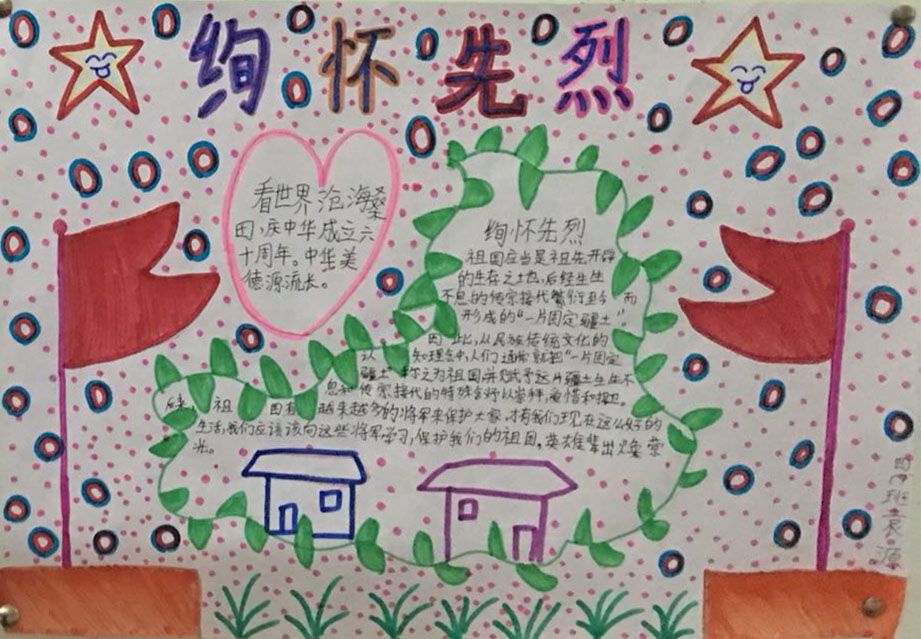 绚怀先烈
看世界沧海桑
田,庆中华成立六
十周年。中华美
德源流长。
绚怀先烈
祖国应当是祖先开辟
的生存之地,后经生生
不息的传宗接代繁衍至今而
形成的“一片固定疆土”
因此,从民族传统文化的
认知理念中,人们通常就把“一片固定
疆土”称之为祖国并赋予这片疆土生生不
息和传宗接代的特殊含义以崇拜,爱惜和捍卫。
后来,祖国有越来越多的将军来保护大家,才有我们现在这么好的
生活,我们应该该向这些将军学习,保护我们的祖国,英雄辈出焕荣
光。
四 班袁源